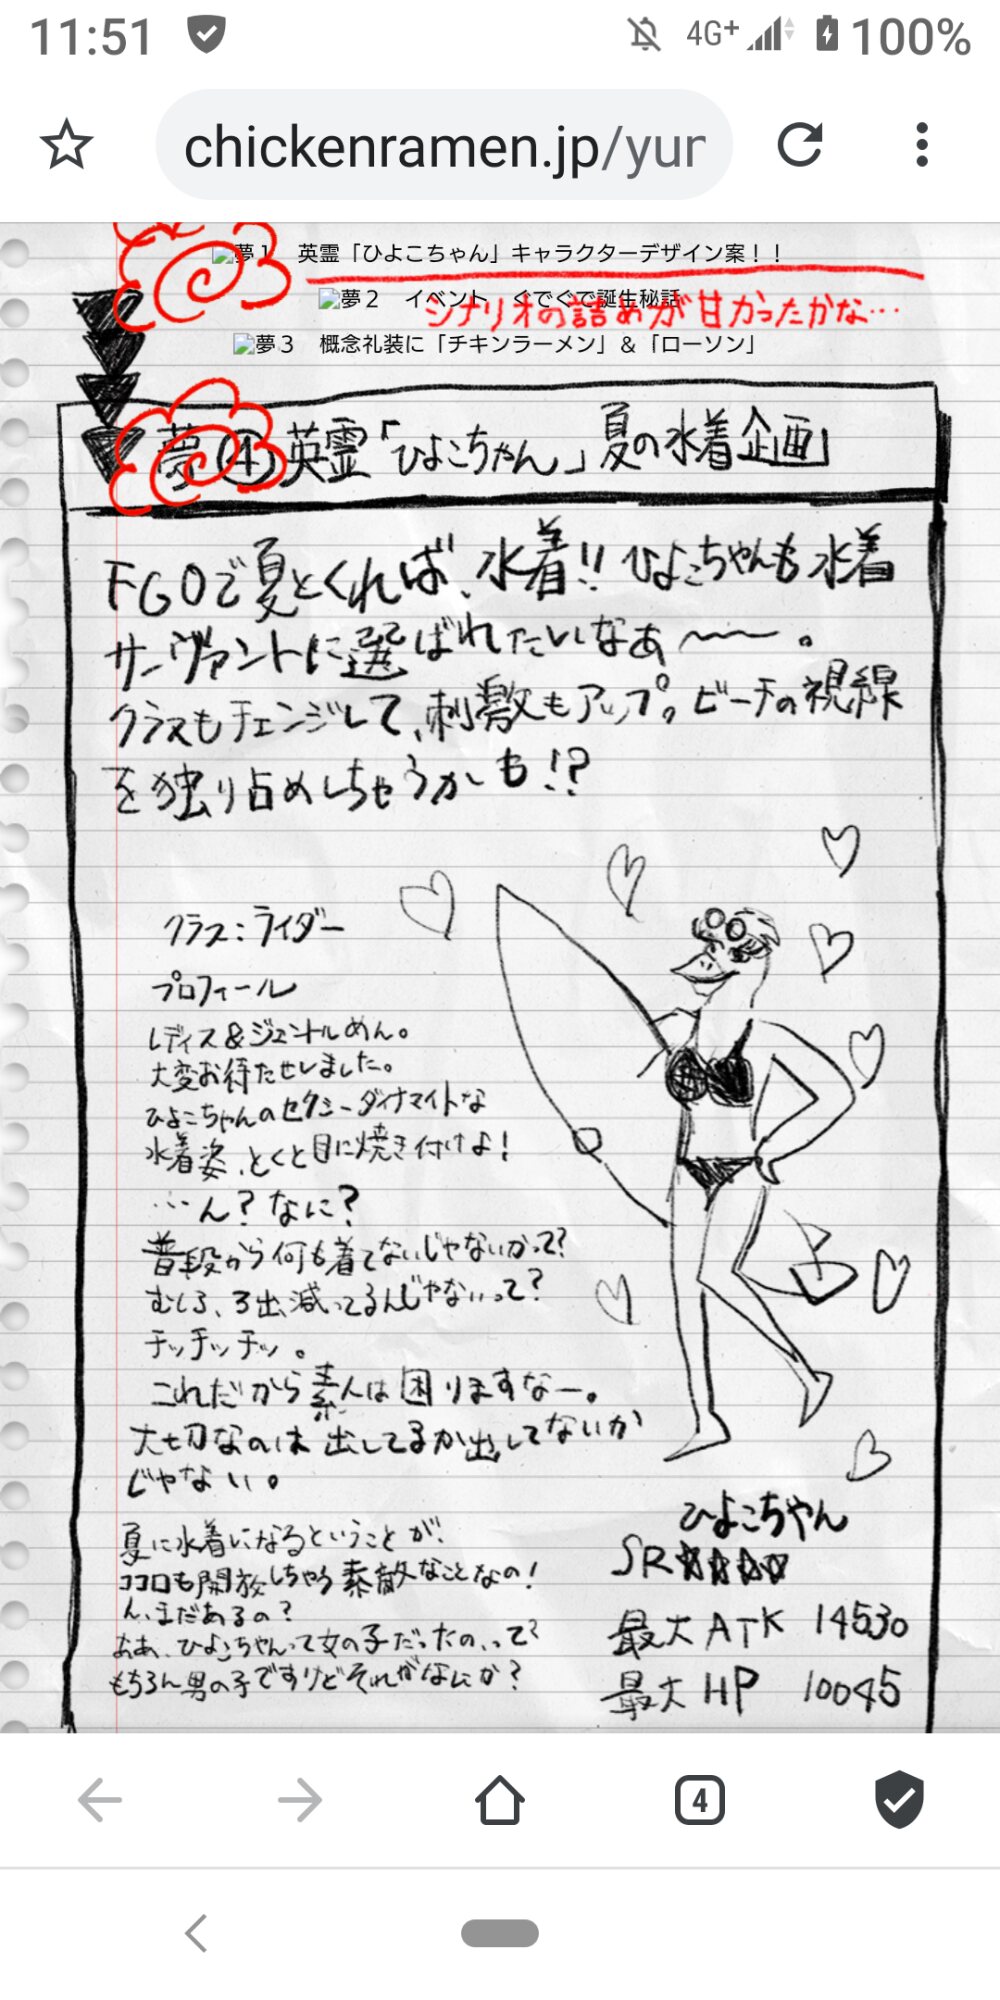 11:51
4G+
100%
chickenramen.jp/yur
夢1 英霊「ひよこちゃん」キャラクターデザイン案!!
夢2 イベント ぐでぐで誕生秘話
シナリオの詰めが甘かったかな…
夢3 概念礼装に「チキンラーメン」&「ローソン」
夢④英霊「ひよこちゃん」夏の水着企画
FGOで夏とくれば、水着!!ひよこちゃんも水着
サーヴァントに選ばれたいなぁ〜〜。
クラスもチェンジして、刺激もアップ。ビーチの視線
を独り占めしちゃうかも!?
クラス:ライダー
プロフィール
レディス&ジェントルめん。
大変お待たせしました。
ひよこちゃんのセクシーダイナマイトな
水着姿、とくと目に焼き付けよ!
…ん?なに?
普段から何も着てないじゃないかって?
むしろ、露出、減ってるんじゃないって?
チッチッチッ。
これだから素人は困りますなー。
大切なのは出してるか出してないか
じゃない。
夏に水着になるということが、
ココロも開放しちゃう素敵なことなの!
ん、まだあるの?
ああ、ひよこちゃんって女の子だったの、って?
もちろん男の子ですけどそれがなにか?
ひよこちゃん
SR☆☆☆☆
最大ATK 14530
最大HP 10045
4